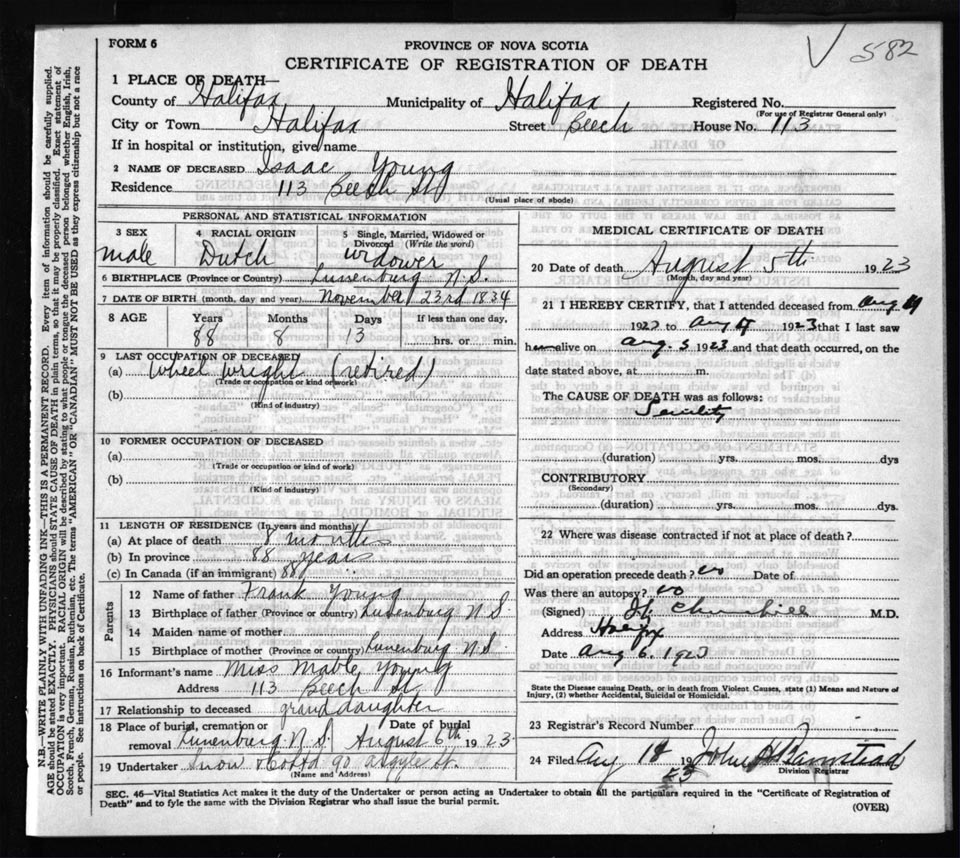 FORM 6
PROVINCE OF NOVA SCOTIA
582
CERTIFICATE OF REGISTRATION OF DEATH
1 PLACE OF DEATH—
County of Halifax Municipality of Halifax Registered No.
(For use of Registrar General only)
City or Town Halifax Street Beech House No. 113
If in hospital or institution, give name
2 NAME OF DECEASED Isaac Young
Residence 113 Beech St
(Usual place of abode)
PERSONAL AND STATISTICAL INFORMATION
3 SEX 4 RACIAL ORIGIN 5 Single, Married, Widowed or Divorced (Write the word)
Male Dutch Widower
6 BIRTHPLACE (Province or Country) Lunenburg N.S.
7 DATE OF BIRTH (month, day and year) November 23rd 1834
8 AGE Years Months Days If less than one day,
88 8 13 hrs. or min.
9 LAST OCCUPATION OF DECEASED
(a) Wheel wright (retired)
(Trade or occupation or kind of work)
(b)
(Kind of industry)
10 FORMER OCCUPATION OF DECEASED
(a)
(Trade or occupation or kind of work)
(b)
(Kind of industry)
11 LENGTH OF RESIDENCE (In years and months)
(a) At place of death 8 months
(b) In province 88 years
(c) In Canada (if an immigrant) 88 "
Parents
12 Name of father Frank Young
13 Birthplace of father (Province or country) Lunenburg N.S.
14 Maiden name of mother
15 Birthplace of mother (Province or country) Lunenburg N.S.
16 Informant's name Miss Mable Young
Address 113 Beech St
17 Relationship to deceased granddaughter
18 Place of burial, cremation or removal Lunenburg N.S. Date of burial August 6th 1923
19 Undertaker Snow & Co Ltd 90 Argyle St.
(Name and Address)
MEDICAL CERTIFICATE OF DEATH
20 Date of death August 5th 1923
(Month, day and year)
21 I HEREBY CERTIFY, that I attended deceased from Aug
192 to Aug 1923 that I last saw
him alive on Aug. 5 1923 and that death occurred, on the
date stated above, at m.
The CAUSE OF DEATH was as follows:
Senility
(duration) yrs. mos. dys
CONTRIBUTORY
(Secondary)
(duration) yrs. mos. dys
22 Where was disease contracted if not at place of death?
Did an operation precede death? no Date of
Was there an autopsy? no
(Signed) Churchill M.D.
Address Halifax
Date Aug 6. 192
State the Disease causing Death, or in death from Violent Causes, state (1) Means and Nature of
Injury, (2) whether Accidental, Suicidal or Homicidal.
23 Registrar's Record Number
24 Filed Aug 19 23 John
Division Registrar
SEC. 46—Vital Statistics Act makes it the duty of the Undertaker or person acting as Undertaker to obtain all the particulars required in the "Certificate of Registration of
Death" and to fyle the same with the Division Registrar who shall issue the burial permit.
(OVER)
N.B.—WRITE PLAINLY WITH UNFADING INK—THIS IS A PERMANENT RECORD. Every item of information should be carefully supplied.
AGE should be stated EXACTLY. PHYSICIANS should STATE CAUSE OF DEATH in plain terms, so that it may be properly classified. Exact statement of
OCCUPATION is very important. RACIAL ORIGIN will be described by stating to what people or tongue the deceased person belonged whether English, Irish,
Scotch, French, German, Russian, Ruthenian, etc. The terms "AMERICAN" OR "CANADIAN" MUST NOT BE USED as they express citizenship but not a race
or people. See instructions on back of Certificate.